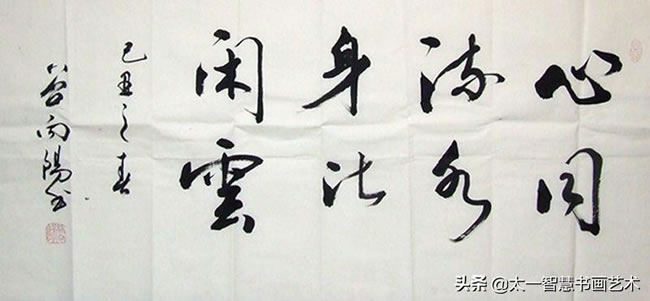 心同
流水
身比
闲雲
己丑之春
谷向陽书
头条 @太一智慧书画艺术